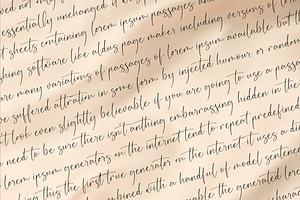 essentially unchanged it was popu
t sheets containing lorem ipsum passages and mo
shing software like aldus page maker including versions of lore
are many variations of passages of lorem ipsum available but th
suffered alteration in some form by injected humour or random
t look even slightly believable if you are going to use a passa
need to be sure there isn't anything embarrassing hidden in the
lorem ipsum generators on the internet tend to repeat predefine
king this the first true generator on the internet it uses a di
combined with a handful of model sentence
the generated lore